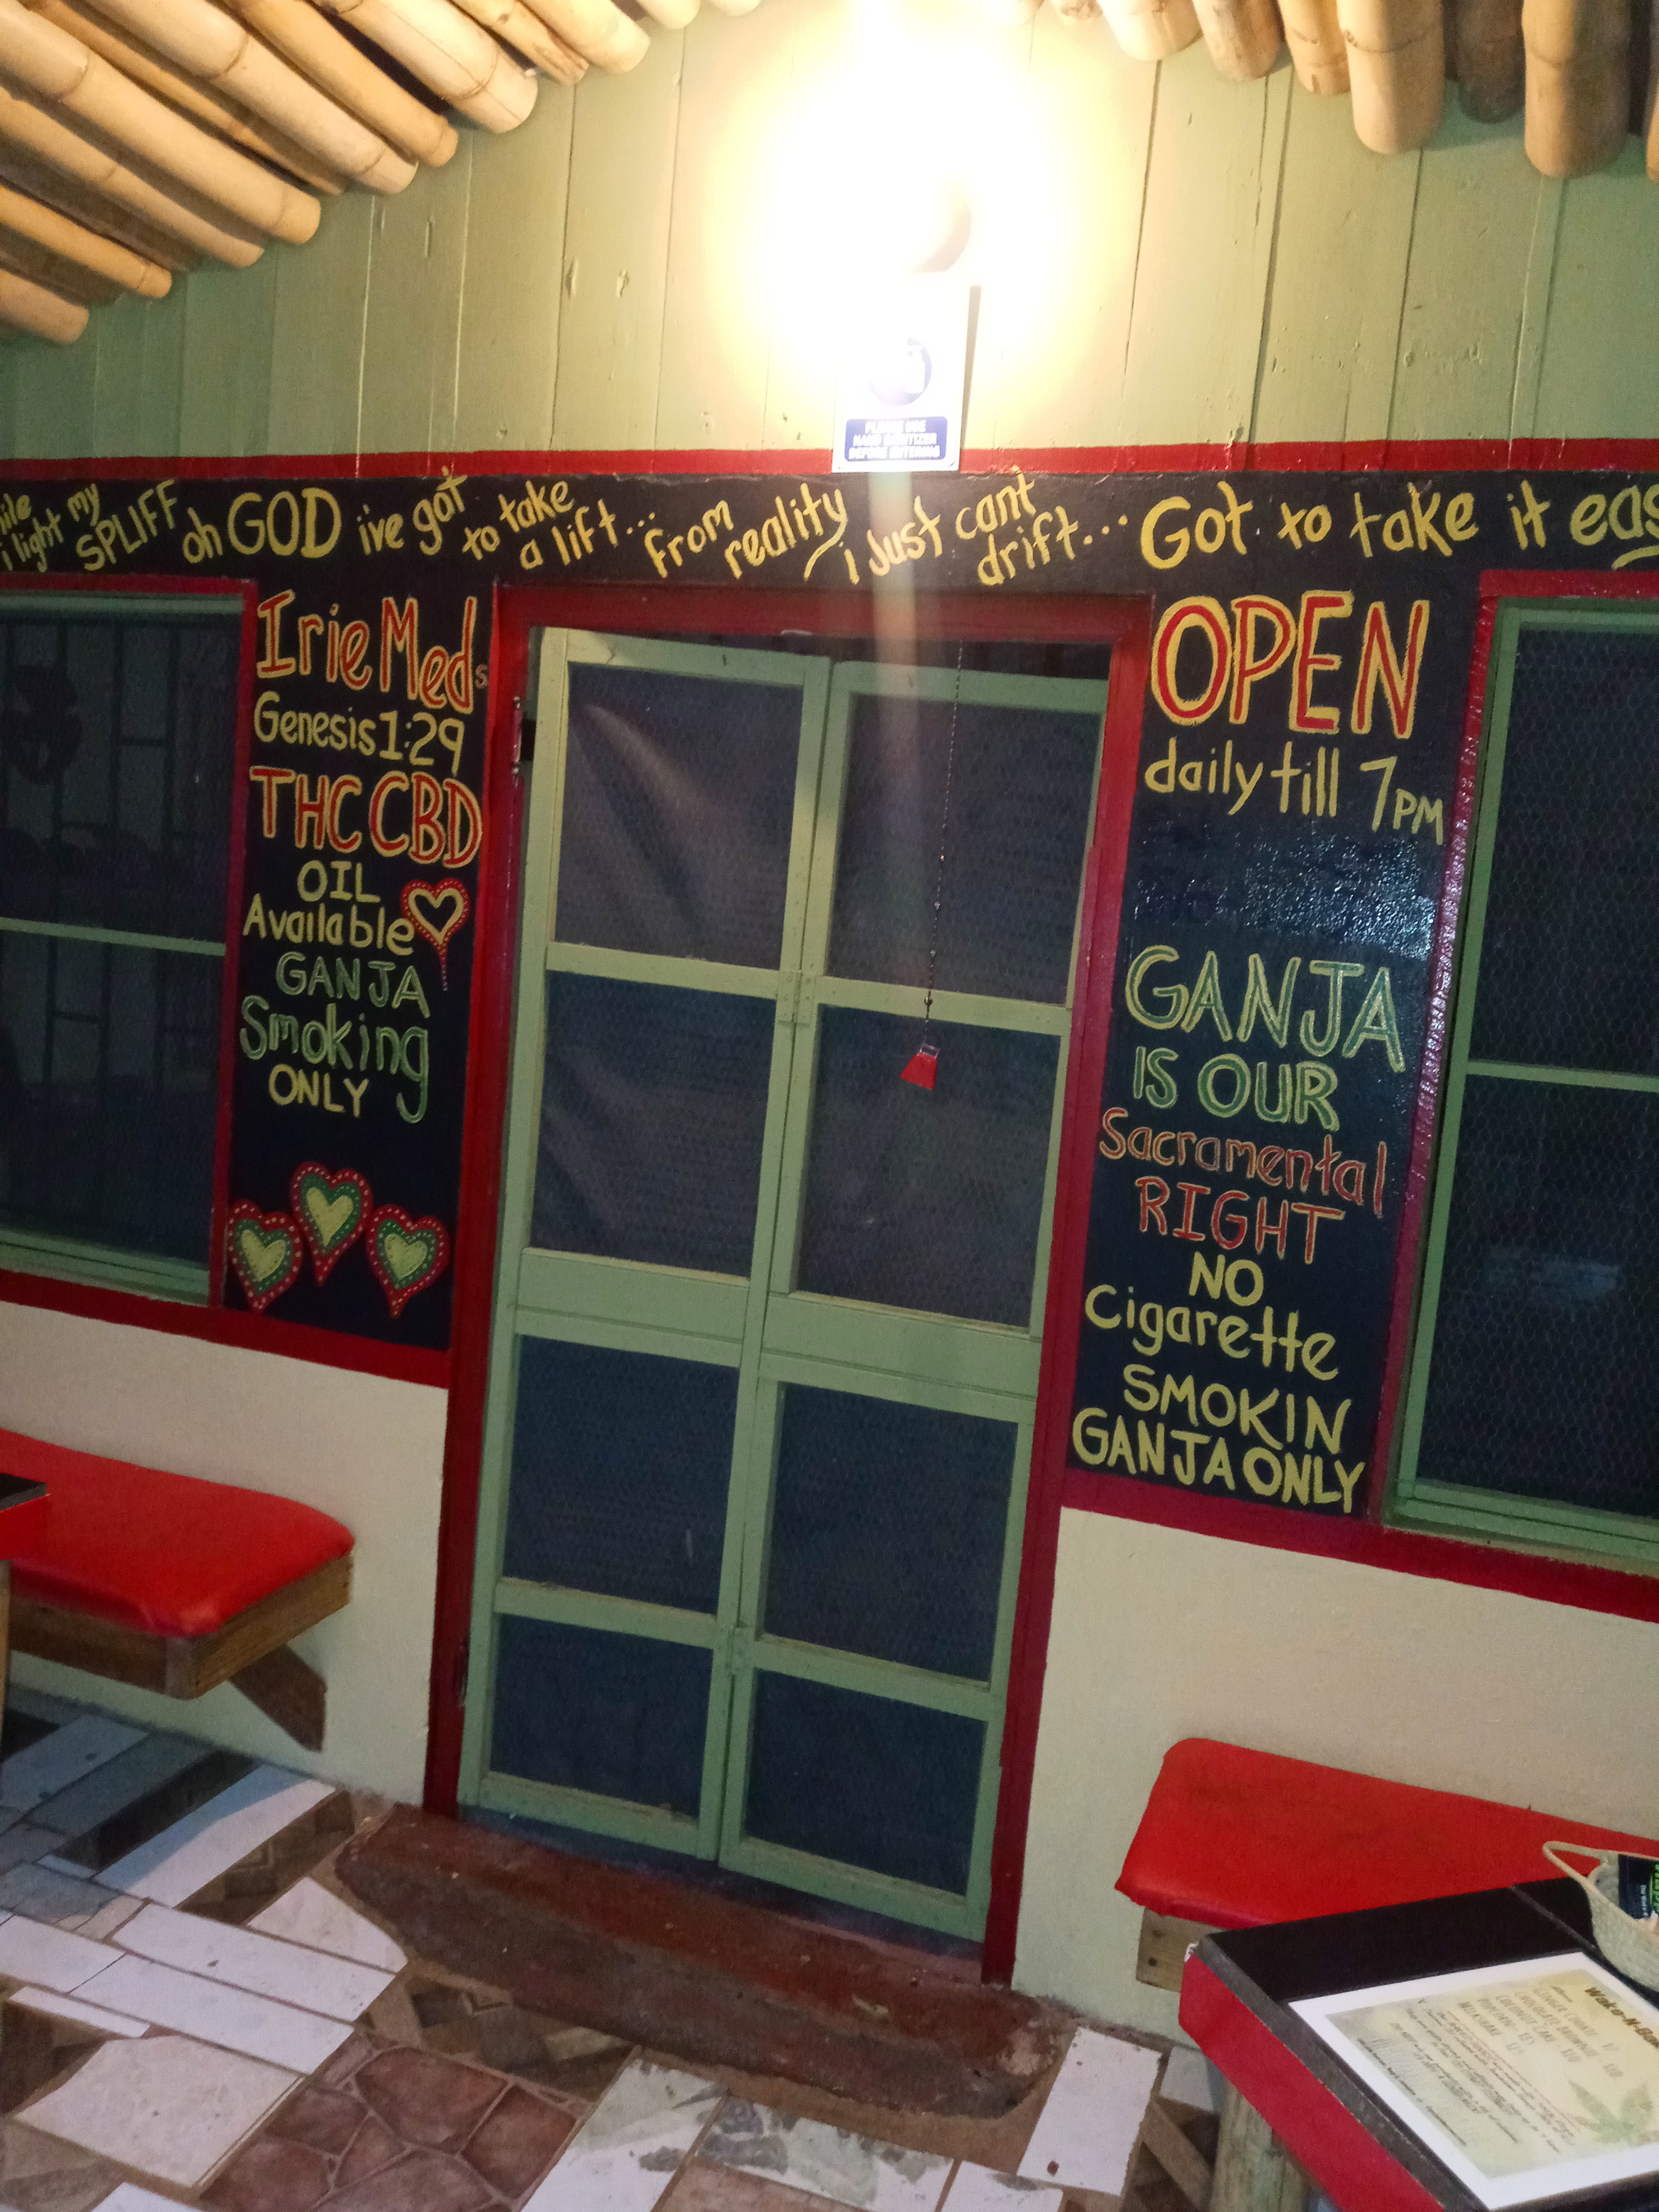 PLEASE USE
HAND SANITIZER
BEFORE ENTERING
i light my SPLIFF oh GOD i've got to take a lift... from reality i just cant drift... Got to take it eas
Irie Meds
Genesis 1:29
THC CBD
OIL
Available
GANJA
Smoking
ONLY
OPEN
daily till 7PM
GANJA
IS OUR
Sacramental
RIGHT
NO
Cigarette
SMOKIN
GANJA ONLY
Wake-N-Ba